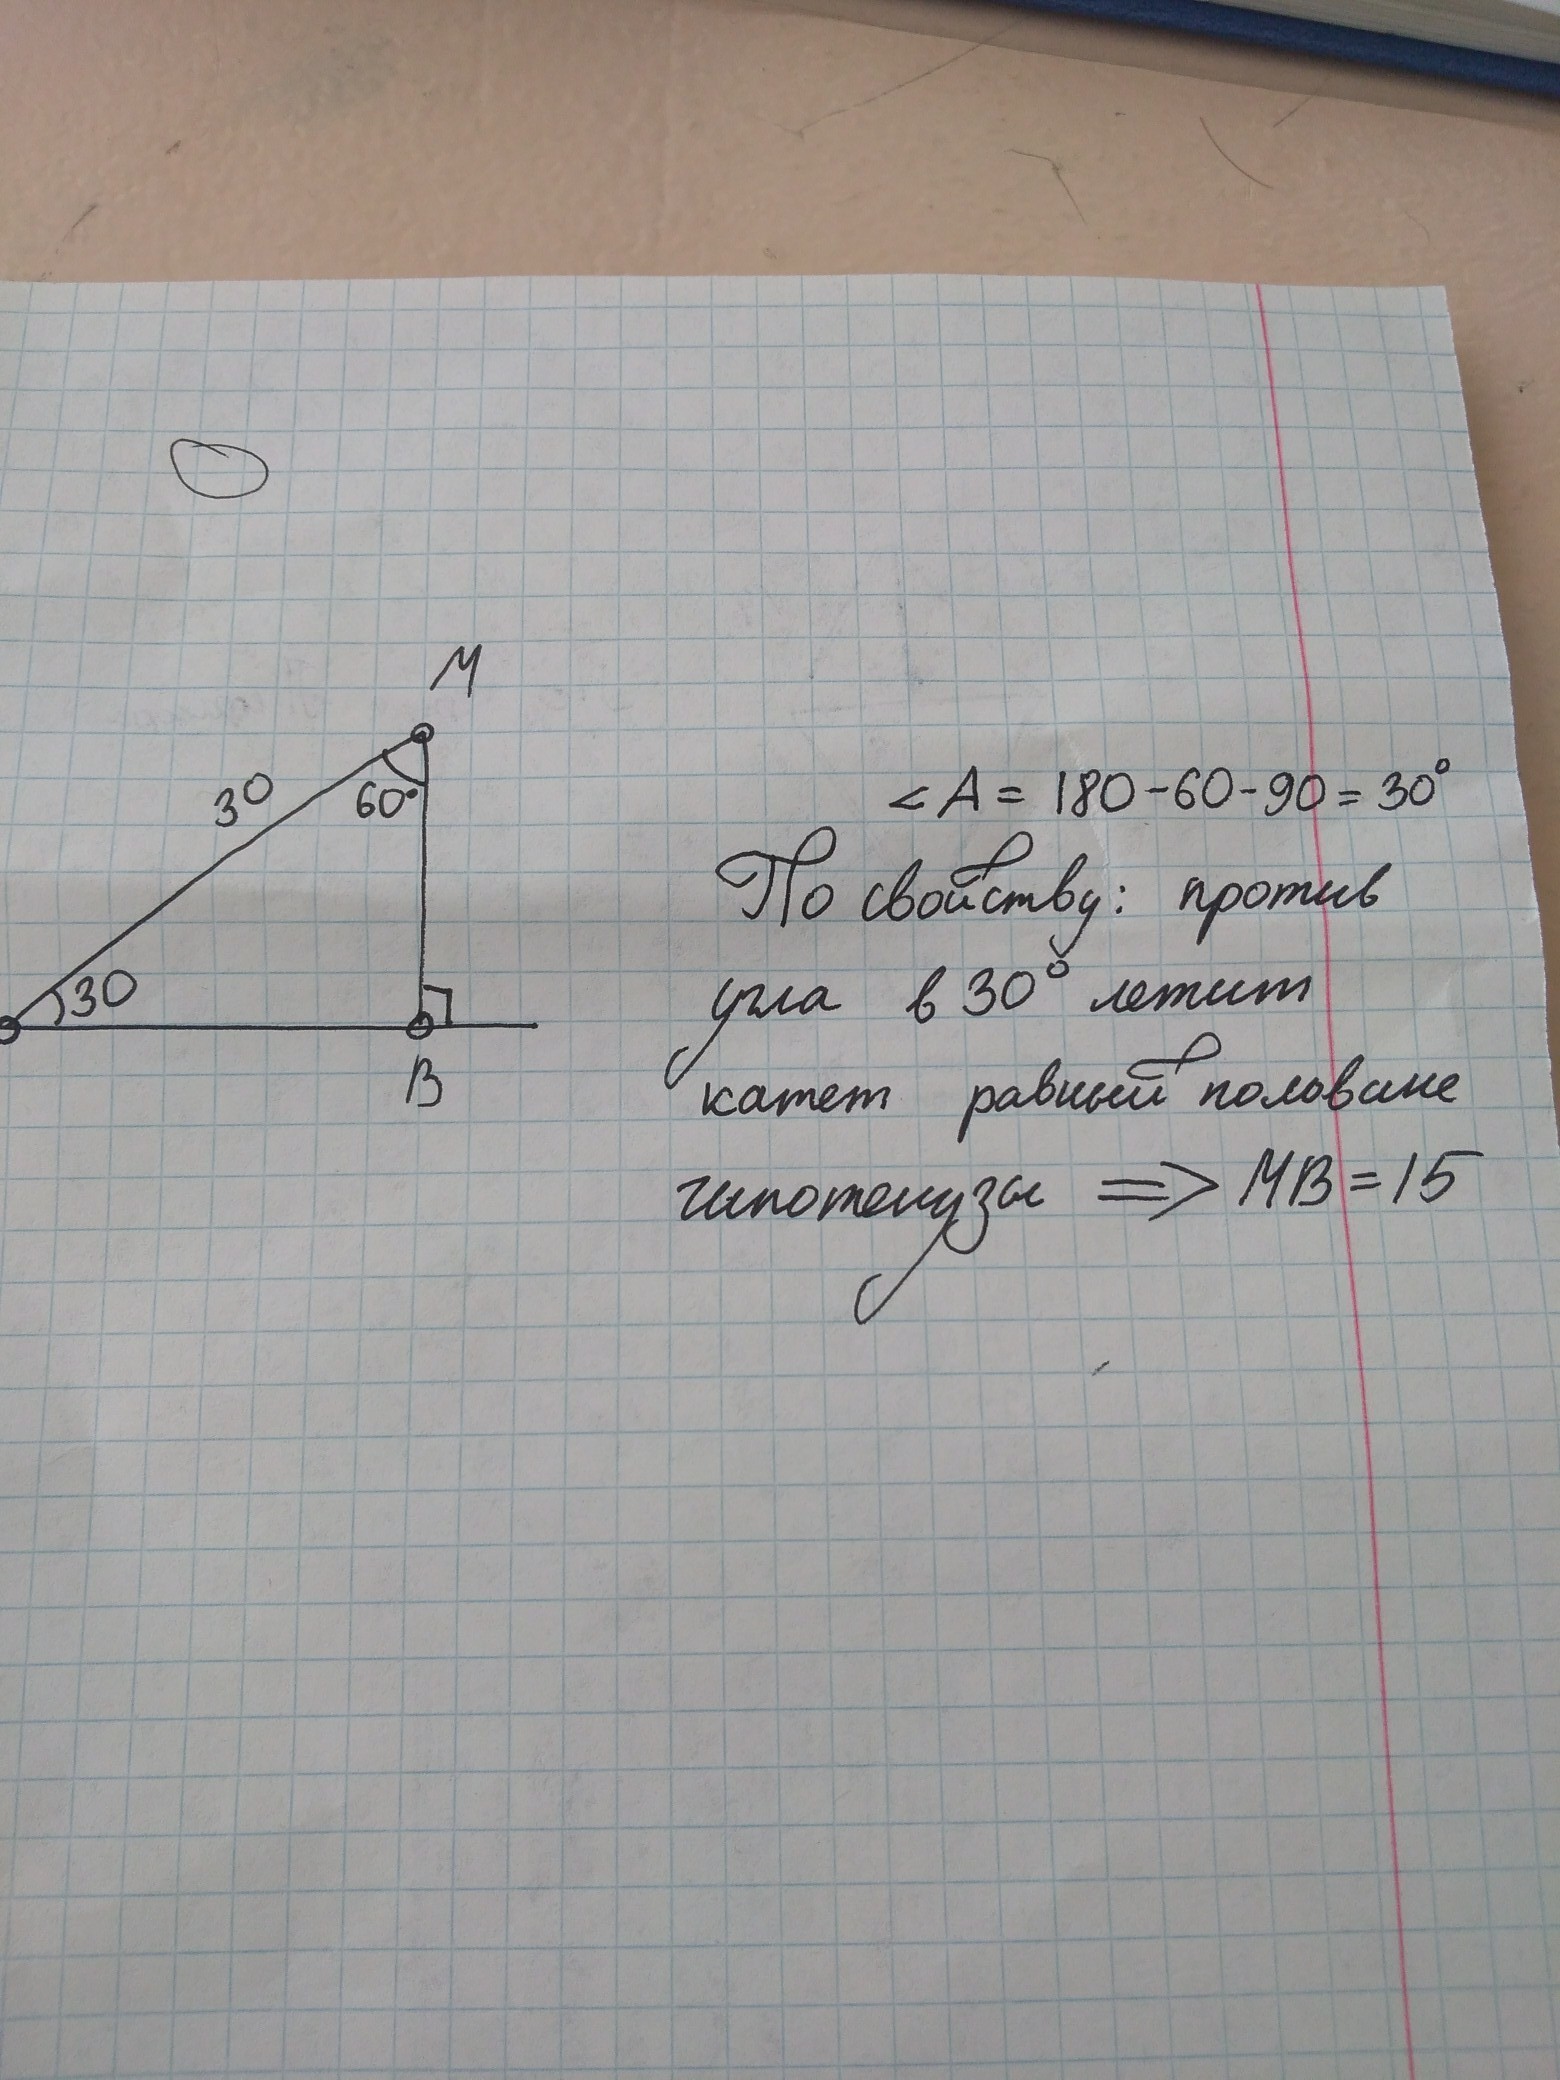 M
30
60°
30
B
<A = 180-60-90 = 30°
По свойству: против
угла в 30° лежит
катет равный половине
гипотенузы => MB = 15